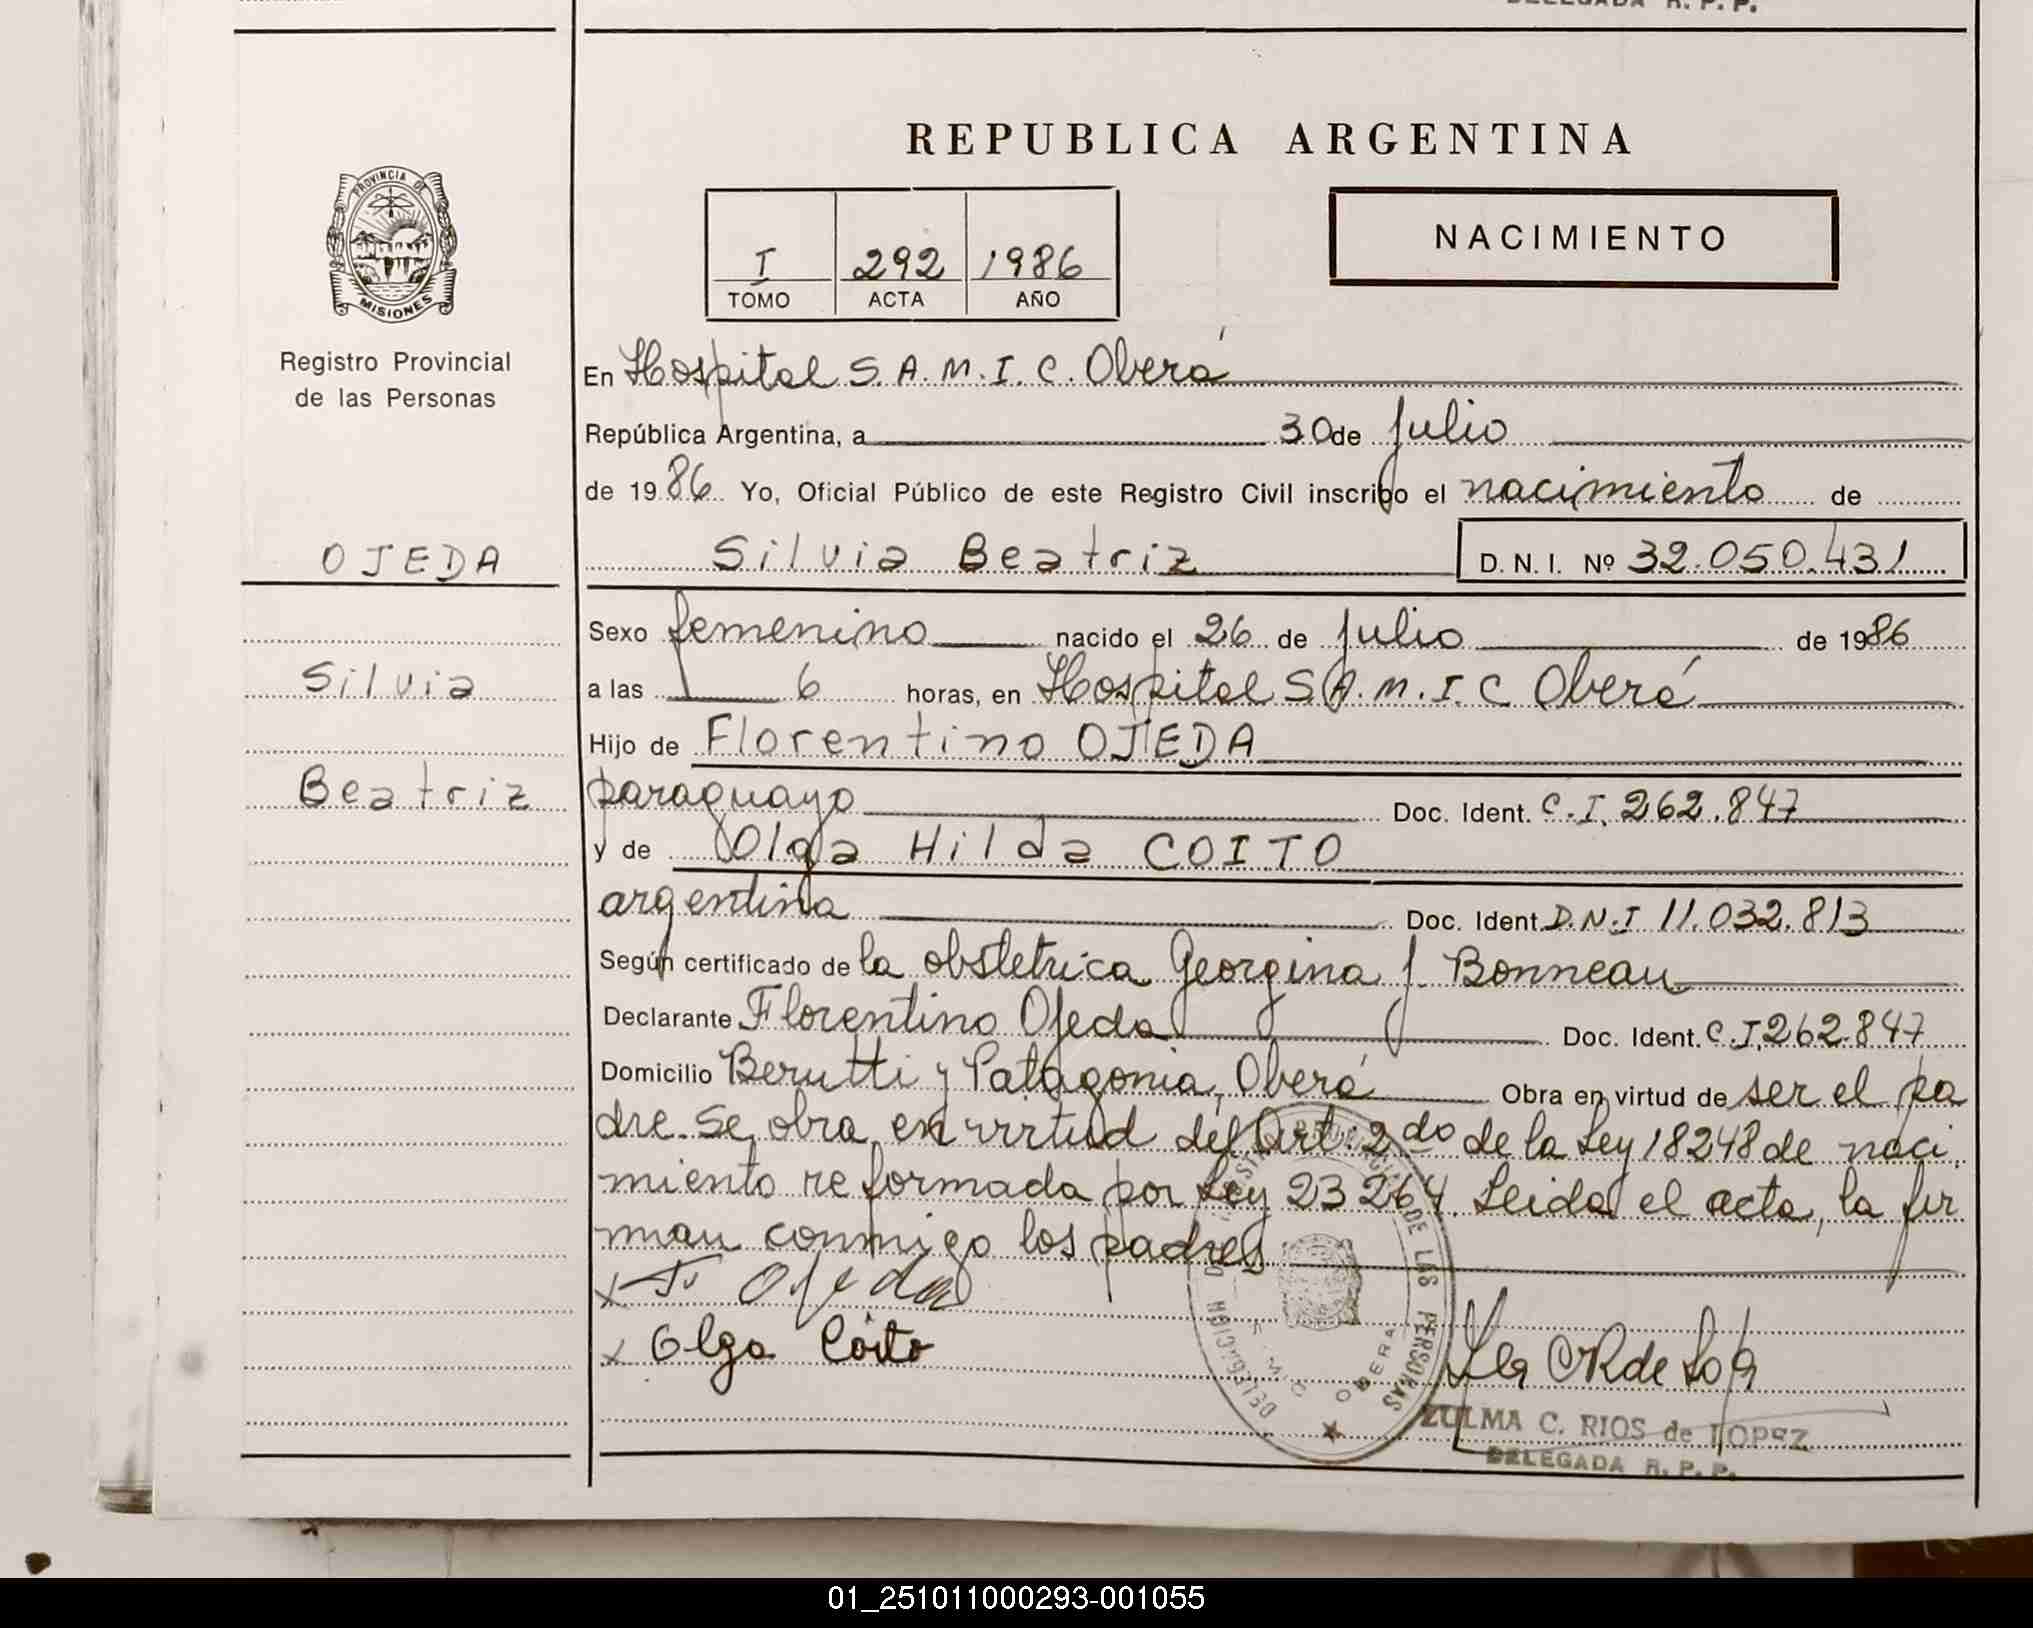 DELEGADA R. P. P.
REPUBLICA ARGENTINA
PROVINCIA DE
MISIONES
Registro Provincial
de las Personas
I 292 1986
TOMO ACTA AÑO
NACIMIENTO
En Hospital S. A. M. I. C. Oberá
República Argentina, a 30 de Julio
de 1986 Yo, Oficial Público de este Registro Civil inscribo el nacimiento de
OJEDA
Silvia Beatriz D. N. I. Nº 32.050.431
Sexo femenino nacido el 26 de Julio de 1986
Silvia
a las 6 horas, en Hospital S. A. M. I. C Oberá
Hijo de Florentino OJEDA
Beatriz
paraguayo Doc. Ident. C. I. 262.847
y de Olga Hilda COITO
argentina Doc. Ident. D.N.I 11.032.813
Según certificado de la obstetrica Georgina J. Bonneau
Declarante Florentino Ojeda Doc. Ident. C. I. 262.847
Domicilio Berutti y Patagonia, Oberá Obra en virtud de ser el pa
dre. Se obra en virtud del Art. 2do de la Ley 18248 de naci
miento reformada por Ley 23264. Leida el acta, la fir
man conmigo los padres
x F Ojeda
x Olga Coito
DELEGACION
DE LAS PERSONAS
OBERA
ZULMA C. RIOS de LOPEZ
DELEGADA R. P. P.
01_251011000293-001055